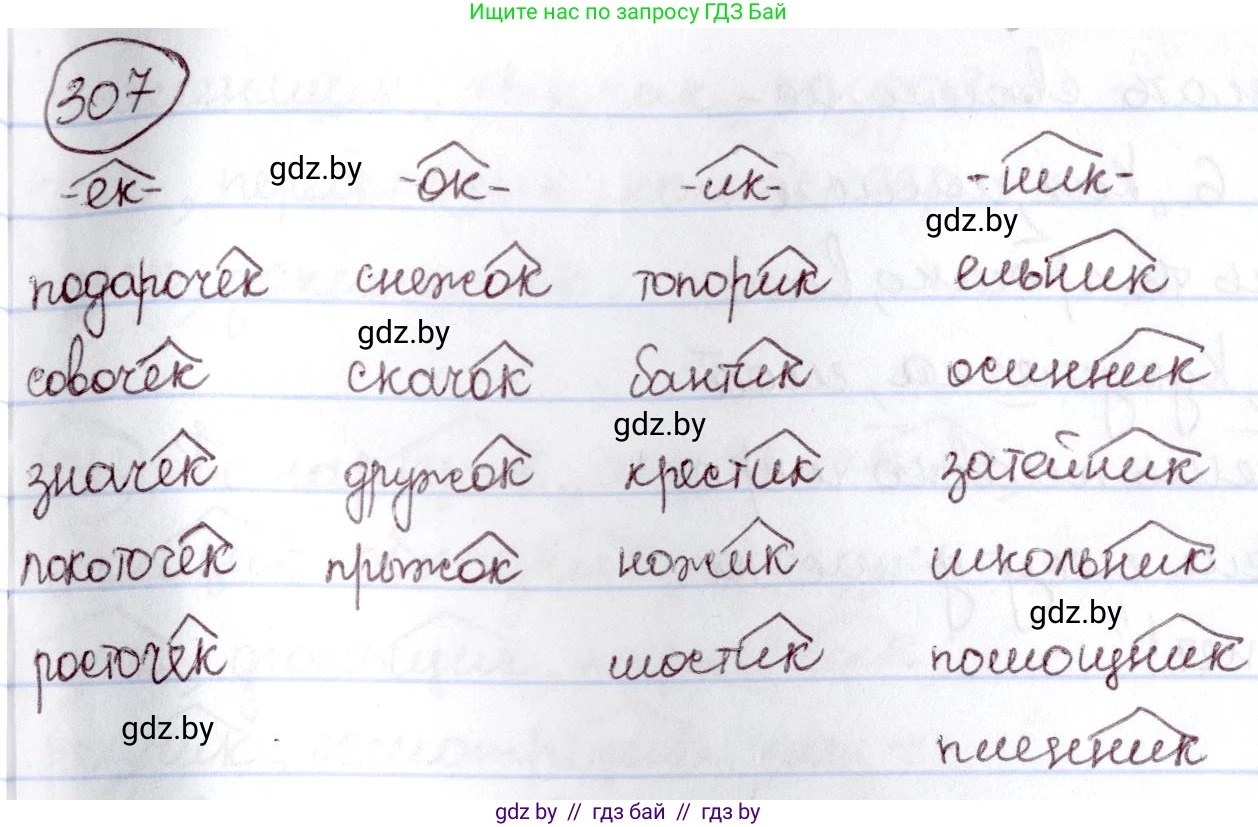 Ищите нас по запросу ГДЗ Бай
307
-ек- gdz.by -ок- -ик- -ник-
gdz.by
подарочек снежок топорик ельник
gdz.by
совочек скачок бантик осинник
gdz.by
значек дружок крестик затейник
локоточек прыжок ножик школьник
gdz.by
росточек мостик помощник
gdz.by
пленник
gdz.by // гдз бай // гдз by